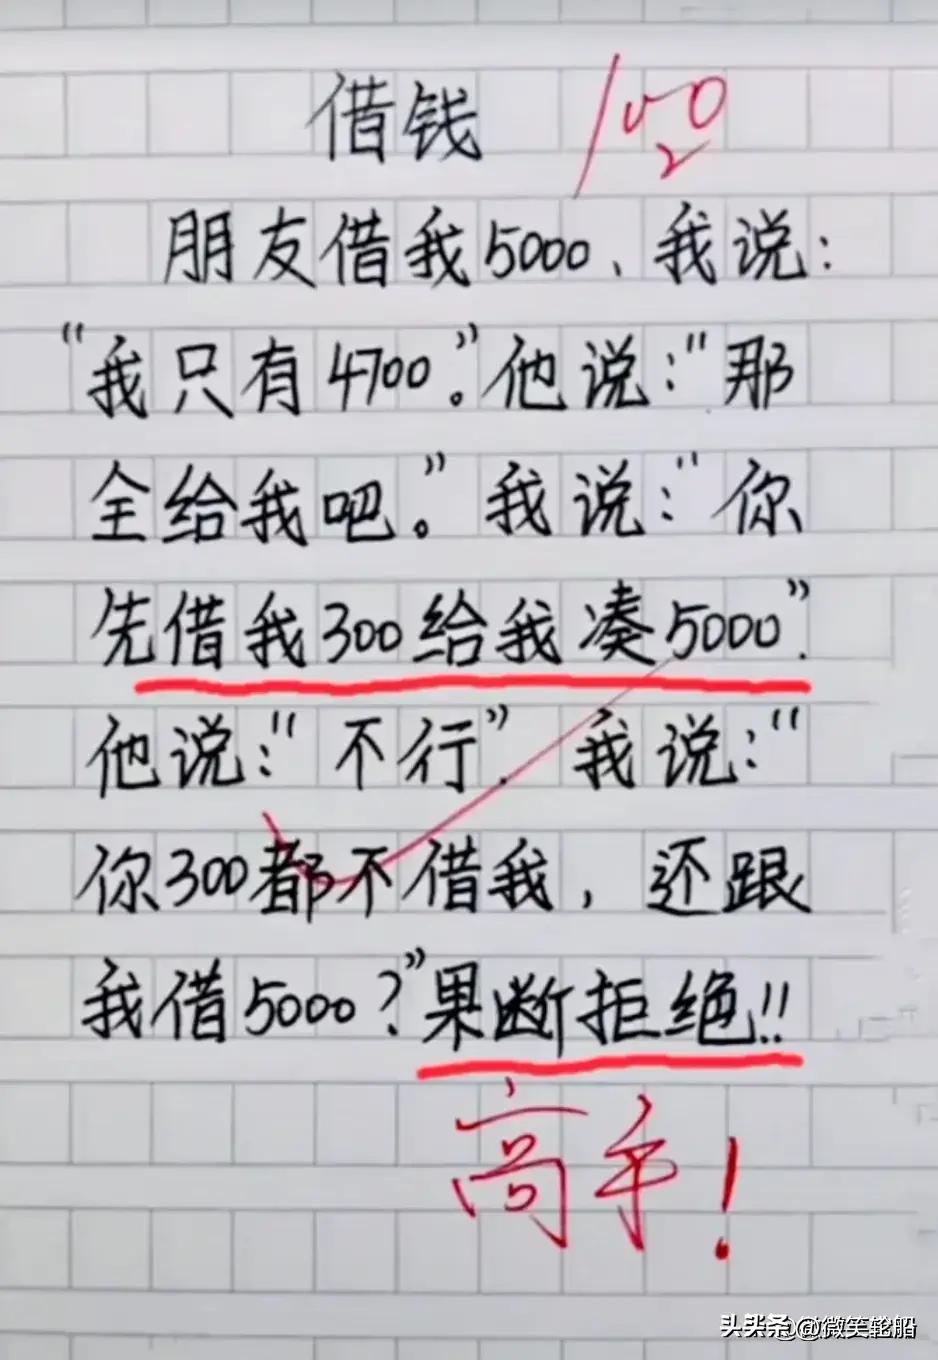 借钱 100
朋友借我5000、我说:
“我只有4700。”他说:“那
全给我吧。”我说:“你
先借我300给我凑5000”.
他说:“不行”. 我说:“
你300都不借我,还跟
我借5000?”果断拒绝!!
高手!
头头条@@微笑轮船